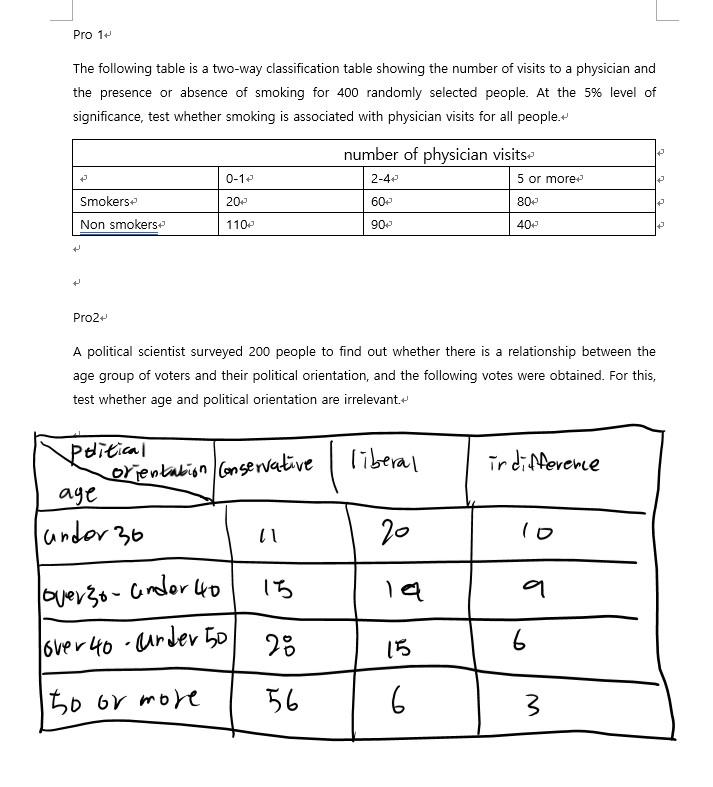 Pro 1
The following table is a two-way classification table showing the number of visits to a physician and
the presence or absence of smoking for 400 randomly selected people. At the 5% level of
significance, test whether smoking is associated with physician visits for all people.
number of physician visits
0-1 2-4 5 or more
Smokers 20 60 80
Non smokers 110 90 40
Pro2
A political scientist surveyed 200 people to find out whether there is a relationship between the
age group of voters and their political orientation, and the following votes were obtained. For this,
test whether age and political orientation are irrelevant.
political
orientation Conservative liberal indifference
age
under 30 11 20 10
over30-under 40 15 19 9
over 40 -under 50 28 15 6
50 or more 56 6 3